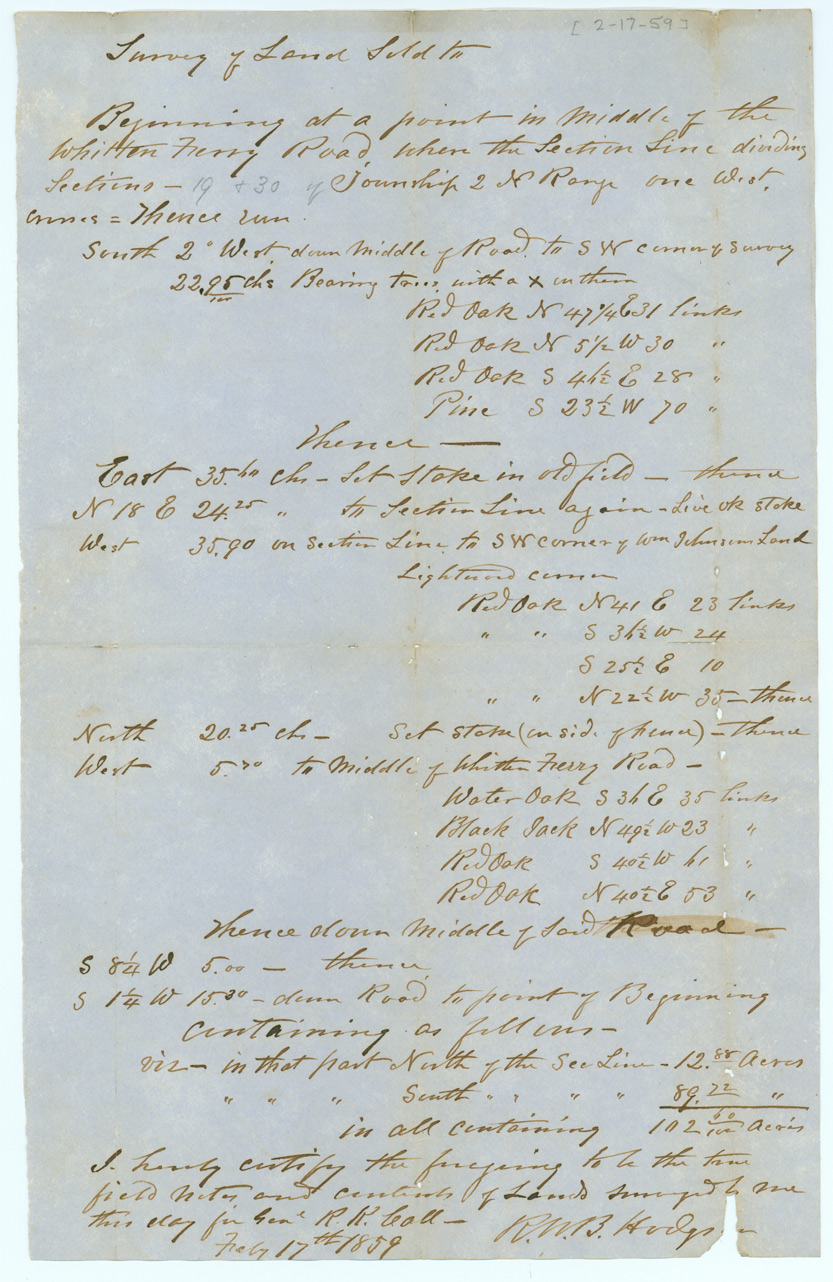 [2-17-59]
Survey of Land Sold to
Beginning at a point in Middle of the
Whitten Ferry Road where the Section Line dividing
Sections - 19 & 30 of Township 2 N Range one West,
crosses = Thence run.
South 2° West down Middle of Road to SW corner of Survey
22.95/100 chs Bearing trees with a X on them
Red Oak N 47 1/4 E 31 links
Red Oak N 5 1/2 W 30 "
Red Oak S 46 1/2 E 28 "
Pine S 23 1/2 W 70 "
Thence —
East 35.60 chs - Set Stake in old field - thence
N 18 E 24.25 " to Section Line again - Live ok stake
West 35.90 on Section Line to SW corner of Wm Johnsons Land
Lightwood corner
Red Oak N 41 E 23 links
" " S 36 1/2 W 24
S 25 1/2 E 10
" " N 22 1/2 W 35 - thence
North 20.25 chs - Set stake (on side of fence) - thence
West 5.70 to Middle of Whitten Ferry Road -
Water Oak S 36 E 35 links
Black Jack N 49 1/2 W 23 "
Red Oak S 40 1/2 W 61 "
Red Oak N 40 1/2 E 53 "
Thence down Middle of Said Road -
S 8 1/4 W 5.00 - thence
S 1 1/4 W 15.30 - down Road to point of Beginning
containing as follows -
viz - in that part North of the Sec Line - 12.88 Acres
" " " South " " " " 89.72 "
in all containing 102 60/100 Acres
I hereby certify the foregoing to be the true
field notes and contents of Lands surveyed by me
this day for Genl R. K. Call -
Feby 17th 1859 R. W. B. Hodgson